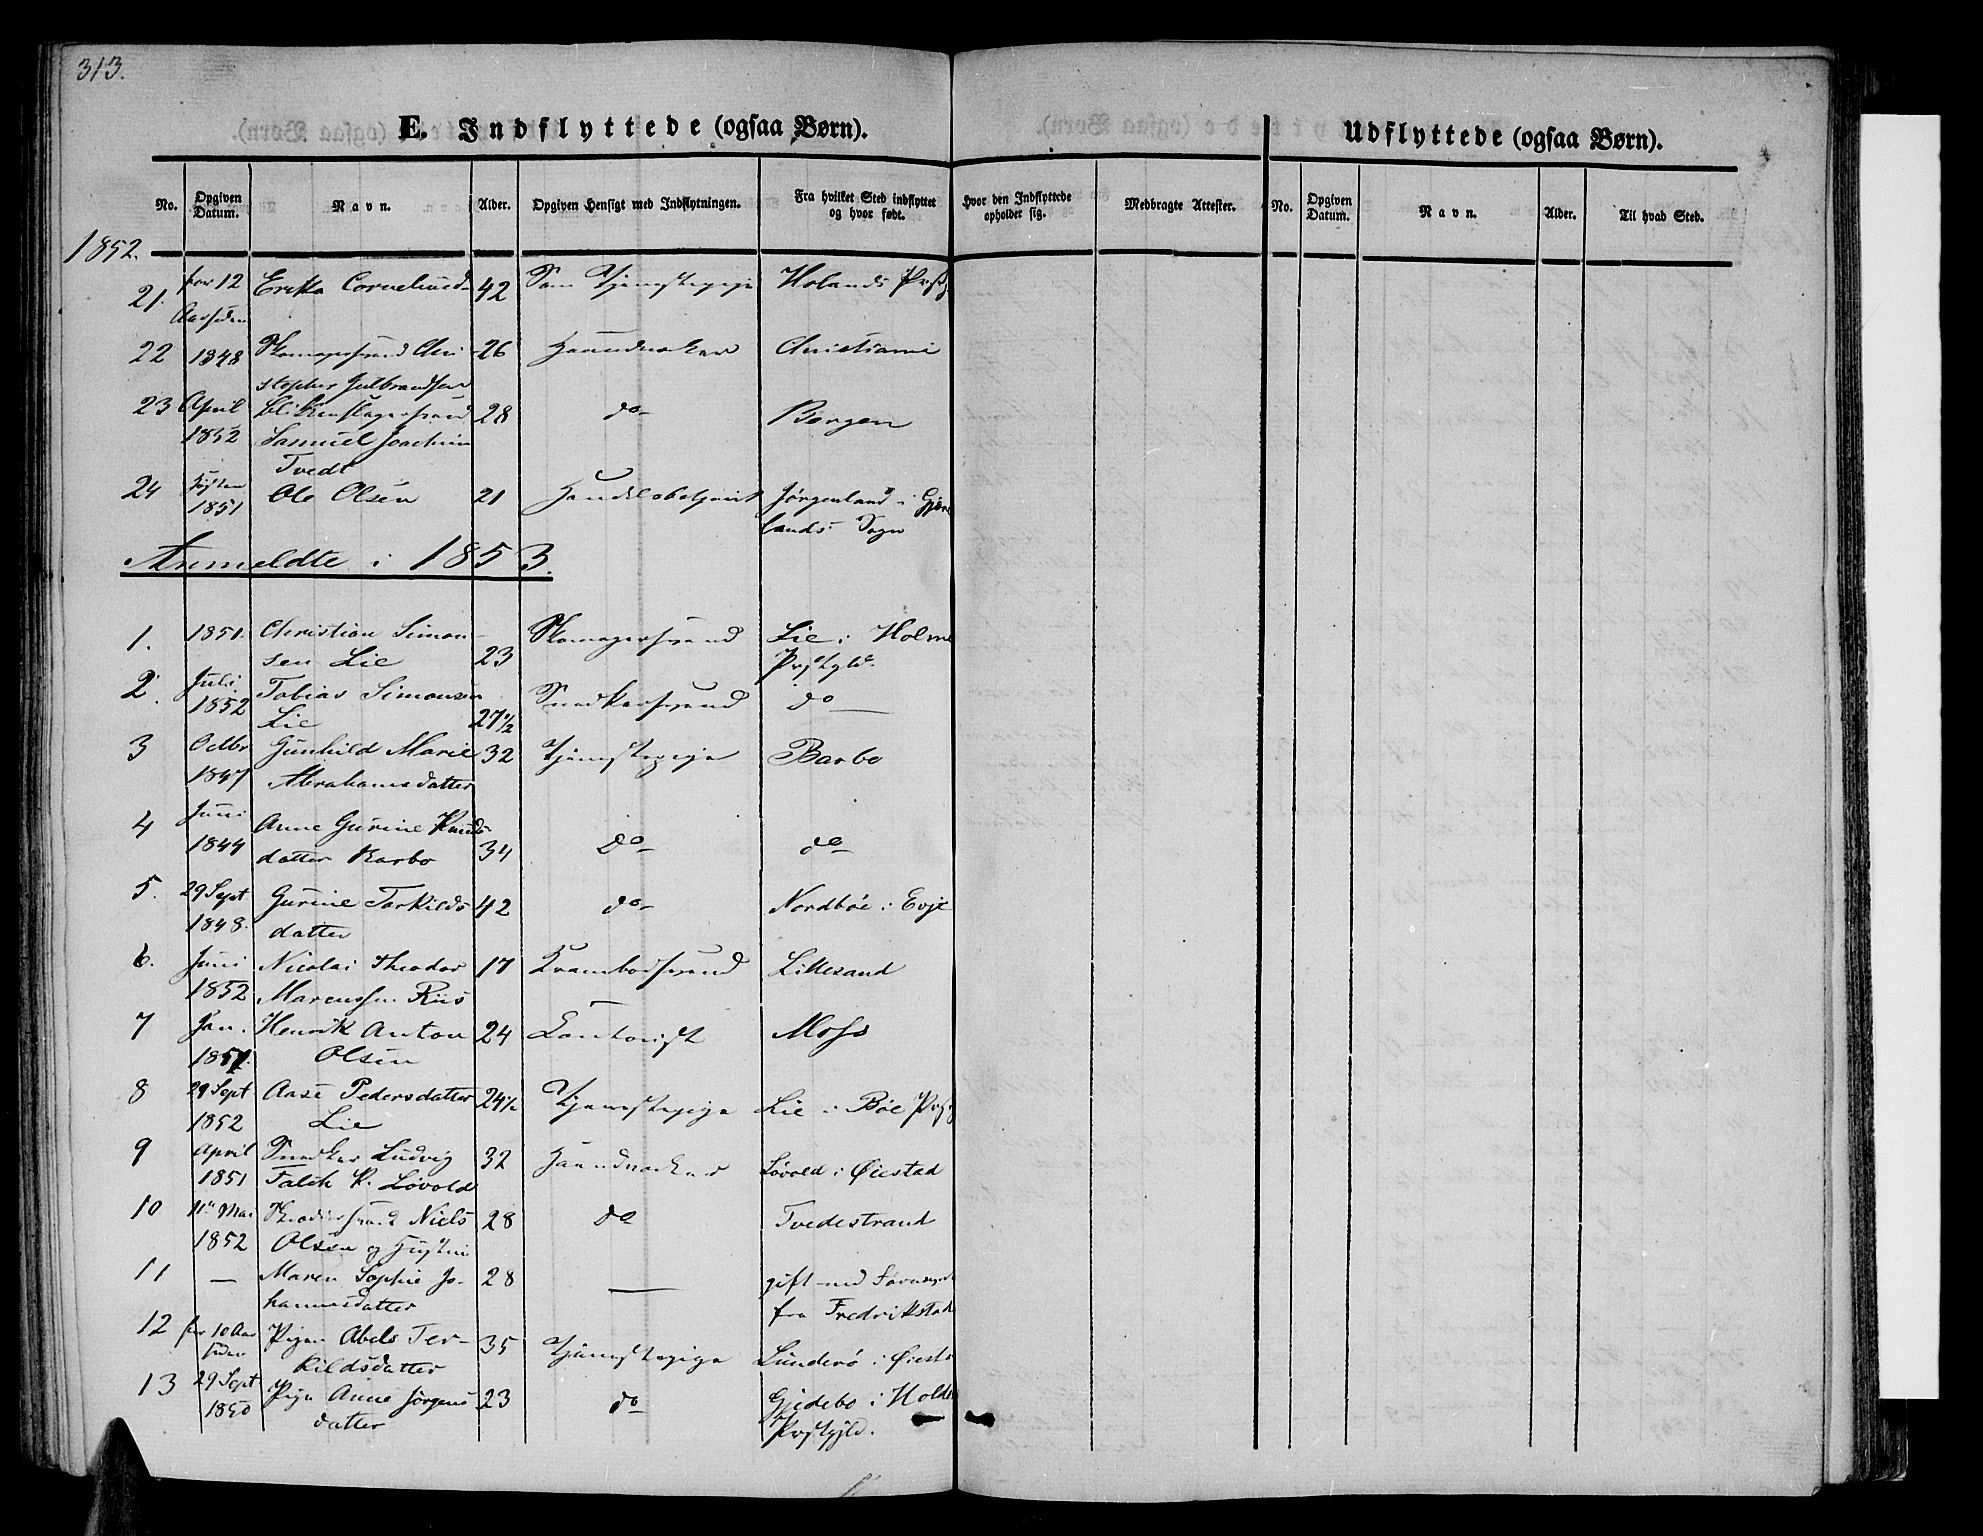 313.
E. Indflyttede (ogsaa Børn).
Udflyttede (ogsaa Børn).
No. Opgiven Datum. Navn. Alder. Opgiven Hensigt med Indflytningen. Fra hvilket Sted indflyttet og hvor født. Hvor den Indflyttede opholder sig. Medbragte Attester. No. Opgiven Datum. Navn. Alder. Til hvad Sted.
1852.
21. for 12 Erikka Corneliusd- 42 Som Tjenestepige Holands Prstg
Aar siden
22 1848 Skomagersvend Chri- 26 Haandværker Christiania
stopher Gulbrandsen
23 April Blikkenslagersvend 28 do- Bergen
1852 Samuel Joachim
Tvedt
24 Høsten Ole Olsen 21 Handelsbetjent Jørgenland i Gjere
1851 lands Sogn
Anmeldte i 1853.
1. 1851. Christian Simon- Skomagersvend Lie i Holme
sen Lie 23 Prstgld.
2. Juli Tobias Simonsen Snedkersvend do
1852 Lie 27½
3 Octbr Gunhild Marie 32 Tjenestepige Barbo
1847 Abrahamsdatter
4 Juni Anne Gurine Knuds-
1844 datter Barbo 34 do- do-
5. 29 Sept Gurine Torkilds 42 do- Nordböe i Evje
1848. datter
6. Juni Nicolai Theodor 17 Krambodsvend Lillesand
1852 Marcussen Riis
7 Jan. Henrik Anton 24 Contorist Moss
1851. Olsen
8 29 Sept Aase Pedersdatter 24½ Tjenestepige Lie i Böe Prstg
1852 Lie
9 April Snedker Ludvig 32 Haandværker Løvold i Øiestad
1851 Falck K. Løvold
10 11te Mai Skrædersvend Niels 28 do Tvedestrand
1852 Olsen og Hustru
11 — Maren Sophie Jo- 28 — gift med Forrige
hannesdatter fra Fredrikstad
12 for 10 Aar Pigen Abels Ter- 35 Tjenestepige Lunderö i Øiest
siden kildsdatter
13 29 Sept Pige Anne Jörgens 23 do Gjedebo i Holds
1850 datter Prstgjld.